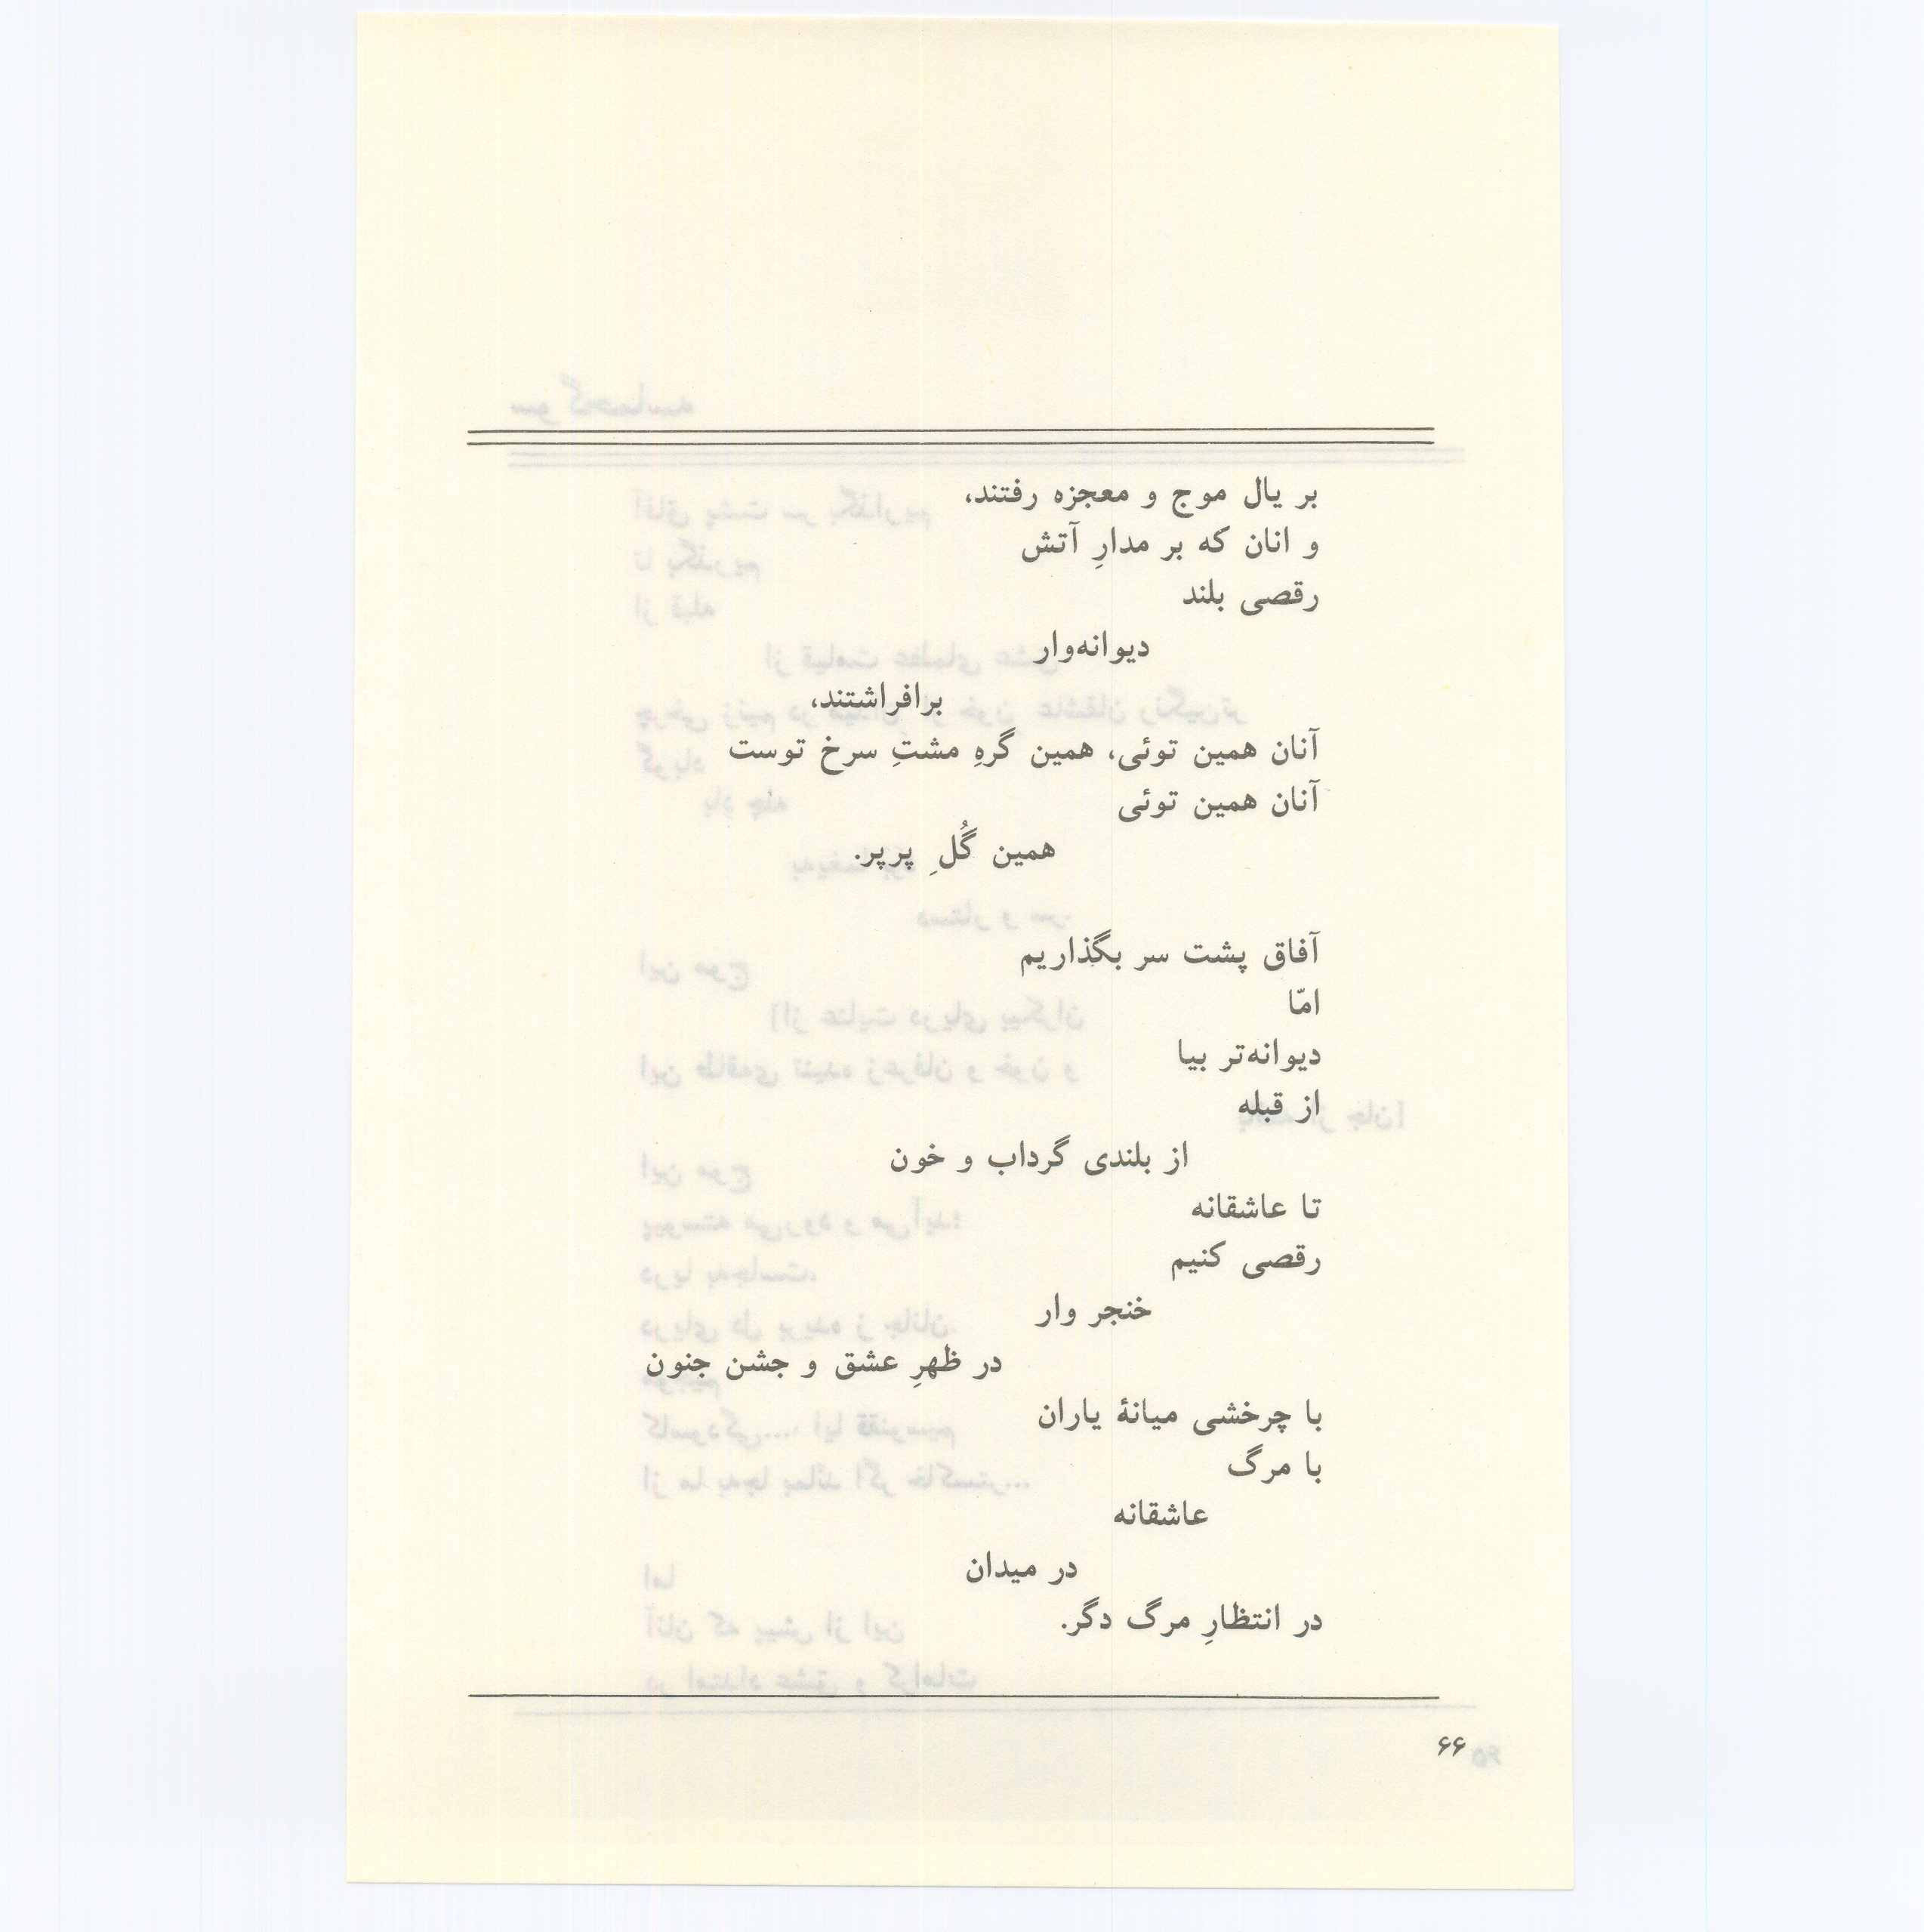 بر یال موج و معجزه رفتند،
و انان که بر مدارِ آتش
رقصی بلند
دیوانه‌وار
برافراشتند،
آنان همین توئی، همین گرهِ مشتِ سرخ توست
آنان همین توئی
همین گُلِ پرپر.
آفاق پشت سر بگذاریم
امّا
دیوانه‌تر بیا
از قبله
از بلندی گرداب و خون
تا عاشقانه
رقصی کنیم
خنجر وار
در ظهرِ عشق و جشن جنون
با چرخشی میانهٔ یاران
با مرگ
عاشقانه
در میدان
در انتظارِ مرگ دگر.
۶۶